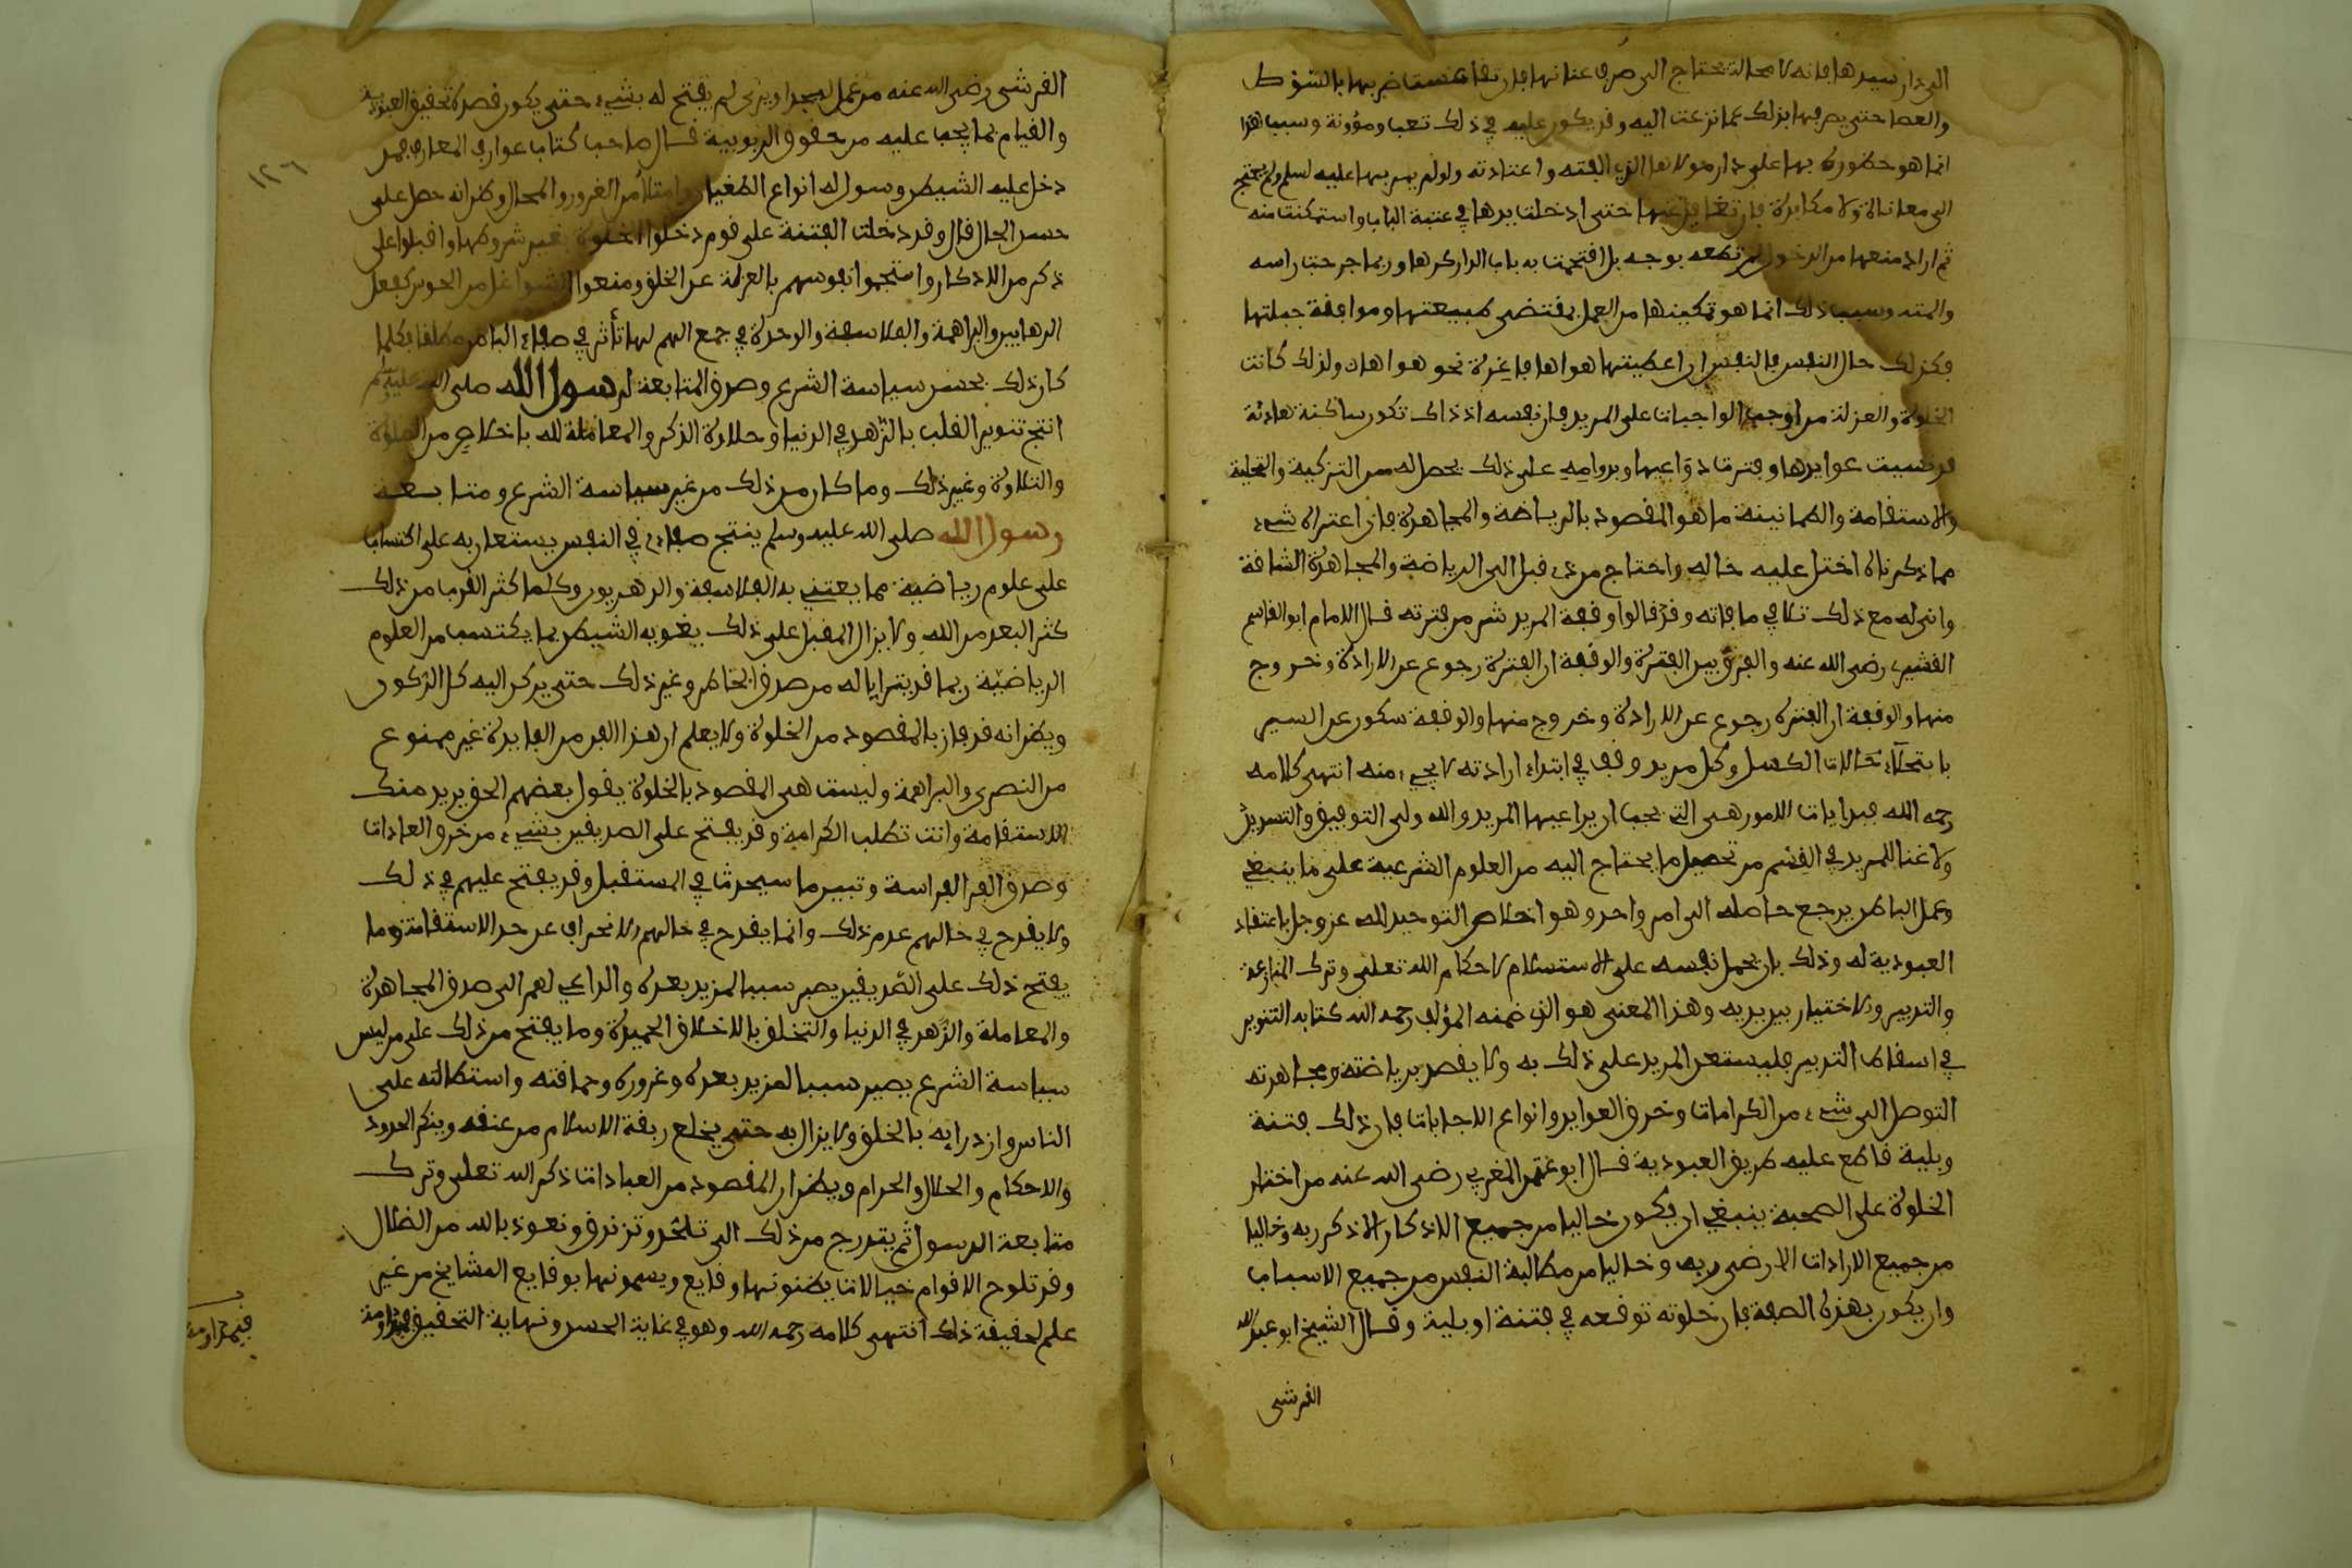 الى دار سيدها فانه لا محالة تحتاج الى صرف عنانها فان تقاعست ضربها بالسوط
والعصا حتى يصرفها بذلك عما نزعت اليه وقد يكون عليه في ذلك تعب ومؤونة وسبب هذا
انما هو حضوره بها على دار مولاها الذي الفته واعتادته ولو لم يمر بها عليه لسلم ولم يحتج
الى معاناة ولا مكابدة فان تغافل عنها حتى ادخلت يدها في عتبة الباب واستمكنت منه
ثم اراد منعها من الدخول لم تطعه بوجه بل اقتحمت به باب الدار كرها وربما جرحت راسه
والمته وسبب ذلك انما هو تمكينها من العمل بمقتضى طبيعتها وموافقة جبلتها
فكذلك حال النفس فالنفس ان اعطيتها هواها فاغرة نحو هواها ولذلك كانت
الخلوة والعزلة من اوجب الواجبات على المريد فان نفسه اذ ذاك تكون ساكنة هادئة
قد نسيت عوايدها وفترت دواعيها وبدوامه على ذلك يحصل له من التزكية والتحلية
والاستقامة والطمانينة ما هو المقصود بالرياضة والمجاهدة فان اعتراه شيء
مما ذكرناه اختل عليه حاله واحتاج من ذي قبل الى الرياضة والمجاهدة الشاقة
وانى له مع ذلك تلافي ما فاته وقد قالوا وقفة المريد شر من فترته قال الامام ابو القاسم
القشيري رضي الله عنه والفرق بين الفترة والوقفة ان الفترة رجوع عن الارادة وخروج
منها والوقفة ان الفترة رجوع عن الارادة وخروج منها والوقفة سكون عن السير
باستحلاء حالات الكسل وكل مريد وقف في ابتداء ارادته لا يجيء منه انتهى كلامه
رحمه الله فبدايات الامور هي التي يجب ان يراعيها المريد والله ولي التوفيق والتسديد
ولا غنا للمريد في القسم من تحصيل ما يحتاج اليه من العلوم الشرعية على ما ينبغي
وعمل الباطن يرجع حاصله الى امر واحد وهو اخلاص التوحيد لله عز وجل باعتقاد
العبودية له وذلك بان يحمل نفسه على الاستسلام لاحكام الله تعلى وترك المنازعة
والتدبير والاختيار بين يديه وهذا المعنى هو الذي ضمنه المؤلف رحمه الله كتابه التنوير
في اسقاط التدبير فليستعن المريد على ذلك به ولا يقصد برياضته ومجاهدته
التوصل الى شيء من الكرامات وخرق العوايد وانواع الاجابات فان ذلك فتنة
وبلية قاطع عليه طريق العبودية قال ابو عثمن المغربي رضي الله عنه من اختار
الخلوة على الصحبة ينبغي ان يكون خاليا من جميع الاذكار الا ذكر ربه وخاليا
من جميع الارادات الا رضى ربه وخاليا من مطالبة النفس من جميع الاسباب
وان يكون بهذه الصفة فان خلوته توقعه في فتنة او بلية وقال الشيخ ابو عبد الله
القرشي
القرشي رضي الله عنه من عمل ليجد او يرى لم يفتح له بشيء حتى يكون قصده تحقيق العبودية
والقيام بما يجب عليه من حقوق الربوبية قال صاحب كتاب عوارف المعارف فمن
دخل عليه الشيطن وسول له انواع الطغيان وامتلا من الغرور والمحال وظن انه حصل على
حسن الحال قال وقد دخلت الفتنة على قوم دخلوا الخلوة بغير شروطها واقبلوا على
ذكر من الاذكار واستجموا نفوسهم بالعزلة عن الخلق ومنعوا الشواغل من الحواس كفعل
الرهابين والبراهمة والفلاسفة والوحدة في جمع الهم لها تأثر في صفاء الباطن مطلقا فكلما
كان ذلك بحسن سياسة الشرع وصدق المتابعة لرسول الله صلى الله عليه وسلم
انتج تنوير القلب بالزهد في الدنيا وحلاوة الذكر والمعاملة لله باخلاص من الصلوة
والتلاوة وغير ذلك وما كان من ذلك من غير سياسة الشرع ومتابعة
رسول الله صلى الله عليه وسلم ينتج صفاء في النفس يستعان به على اكتساب
على علوم رياضية مما يعتني به الفلاسفة والدهريون وكلما كثر القرب من ذلك
كثر البعد من الله ولا يزال المقبل على ذلك يغويه الشيطن بما يكتسب من العلوم
الرياضية ربما قد يتراءا له من صدق الخاطر وغير ذلك حتى يركن اليه كل الركون
ويظن انه قد فاز بالمقصود من الخلوة ولا يعلم ان هذا الفن من الفايدة غير ممنوع
من النصرى والبراهمة وليست هي المقصود بالخلوة يقول بعضهم الحق يريد منك
الاستقامة وانت تطلب الكرامة وقد يفتح على الصديقين بشيء من خرق العادات
وصدق الفراسة وتبيين ما سيحدث في المستقبل وقد يفتح عليهم في ذلك
ولا يقدح في حالهم عدم ذلك وانما يقدح في حالهم الانحراف عن حد الاستقامة وما
يفتح ذلك على الصديقين يصير سببا لمزيد بعده والداعي لهم الى صدق المجاهدة
والمعاملة والزهد في الدنيا والتخلق بالاخلاق الحميدة وما يفتح من ذلك على من ليس
سياسة الشرع يصير سببا لمزيد بعده وغروره وحماقته واستطالته على
الناس وازدرايه بالخلق ولا يزال به حتى يخلع ربقة الاسلام من عنقه وينكر الحدود
والاحكام والحلال والحرام ويظن ان المقصود من العبادات ذكر الله تعلى وترك
متابعة الرسول ثم يتدرج من ذلك الى تلحد وتزندق ونعوذ بالله من الضلال
وقد تلوح لاقوام خيالات يظنونها وقايع ويسمونها بوقايع المشايخ من غير
علم لحقيقة ذلك انتهى كلامه رحمه الله وهو في غاية الحسن ونهاية التحقيق
١٢٦